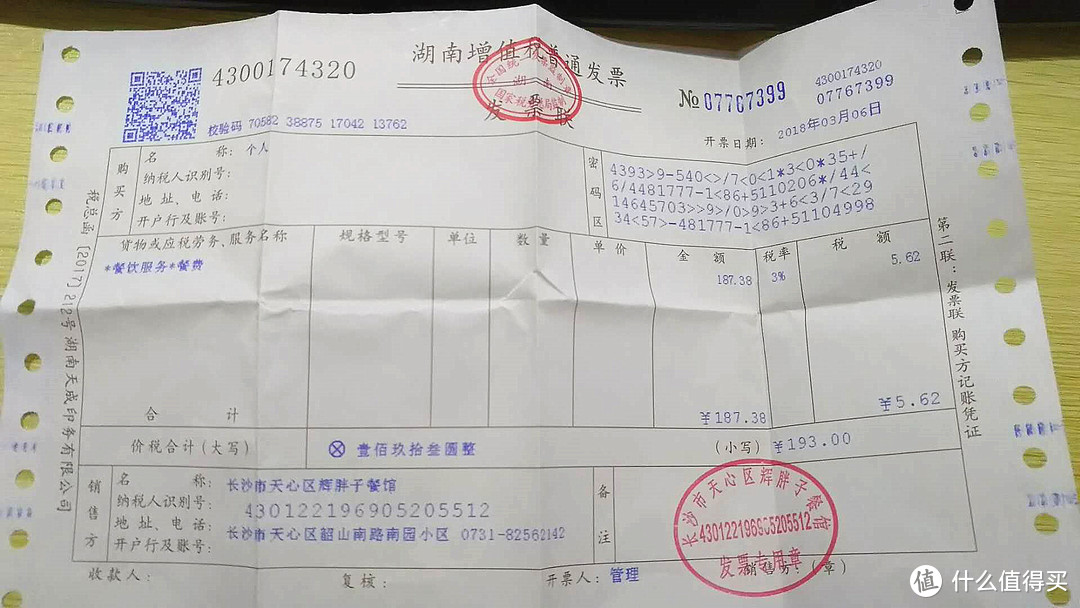 湖南增值税普通发票
发票联
4300174320
№07767399
4300174320
07767399
校验码 70582 38875 17042 13762
开票日期: 2018年03月06日
购买方
名 称: 个人
纳税人识别号:
地址、电话:
开户行及账号:
密码区
4393>9-540<>/7<0<1*3<0*35+/
6/4481777-1<86+5110206*/44<
14645703>>9>/0>9>3+6<3/7<29
34<57>-481777-1<86+51104998
货物或应税劳务、服务名称 规格型号 单位 数量 单价 金额 税率 税额
*餐饮服务*餐费 187.38 3% 5.62
合 计 ¥187.38 ¥5.62
价税合计(大写) ⊗ 壹佰玖拾叁圆整 (小写) ¥193.00
销售方
名 称: 长沙市天心区辉胖子餐馆
纳税人识别号: 430122196905205512
地址、电话: 长沙市天心区韶山南路南园小区 0731-82562142
开户行及账号:
备注
长沙市天心区辉胖子餐馆
430122196905205512
发票专用章
收款人: 复核: 开票人: 管理 销售方:(章)
税总函[2017]212号湖南天成印务有限公司
第二联:发票联 购买方记账凭证
值 什么值得买